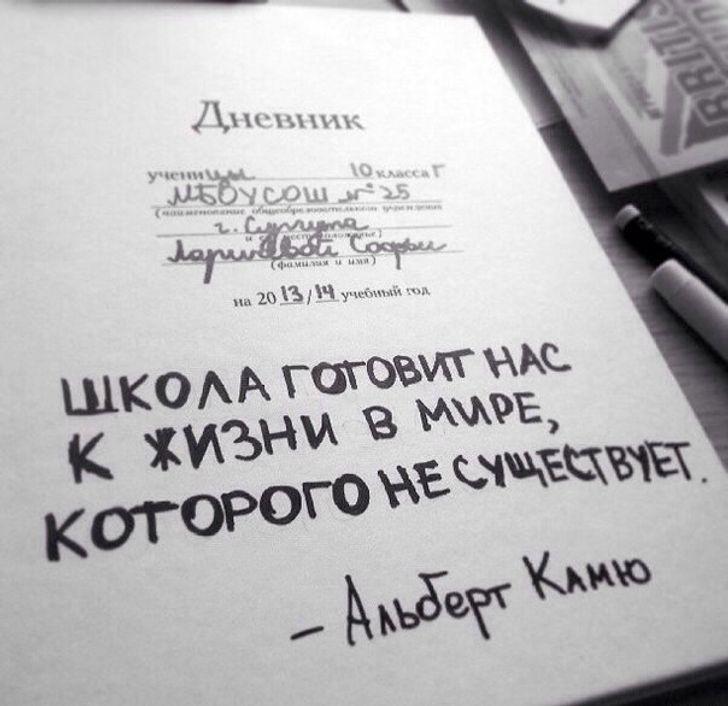 Дневник
ученицы 10 класса Г
МБОУСОШ №25
(наименование общеобразовательного учреждения
г. Сургута
и местоположение)
Лариновой Софьи
(фамилия и имя)
на 2013/14 учебный год
ШКОЛА ГОТОВИТ НАС
К ЖИЗНИ В МИРЕ,
КОТОРОГО НЕ СУЩЕСТВУЕТ.
- Альберт Камю
BRITIS